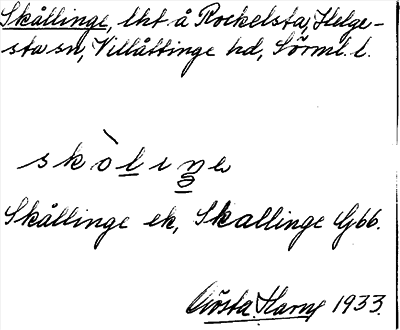 Skållinge, lht å Rockelsta, Helge-
sta sn, Villåttinge hd, Sörml. l.
skòlıŋə
Skållinge ek, Skallinge Gbb.
Gösta Harg 1933.